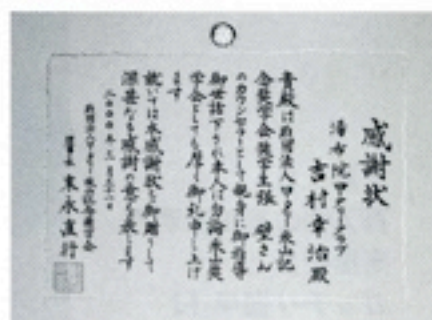 感謝状
湯布院ロータリークラブ
吉村幸治殿
貴殿は財団法人ロータリー米山記
念奨学会奨学生張 壁さん
のカウンセラーとして親身に御指導
御世話下さり本人は勿論米山奨
学会としても厚く御礼申し上げ
ます
就いては本感謝状を御贈りして
深甚なる感謝の意を表します
二〇〇 年 三月三十一日
財団法人ロータリー米山記念奨学会
理事長 末永直行